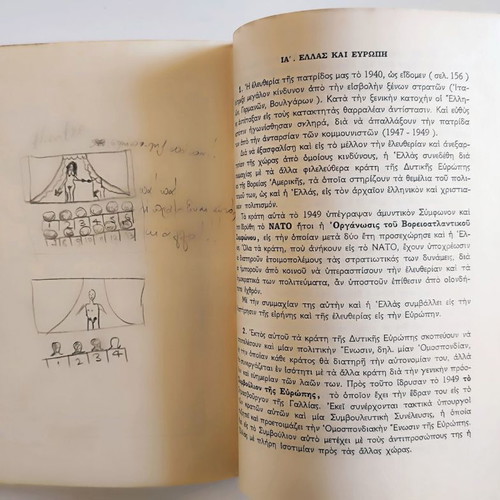 ΙΑ΄. ΕΛΛΑΣ ΚΑΙ ΕΥΡΩΠΗ
1. Ἡ ἐλευθερία τῆς πατρίδος μας τὸ 1940, ὡς εἴδομεν ( σελ. 156 )
μεγάλον κίνδυνον ἀπὸ τὴν εἰσβολὴν ξένων στρατῶν ( Ἰτα-
Γερμανῶν, Βουλγάρων ). Κατὰ τὴν ξενικὴν κατοχὴν οἱ Ἕλλη-
εἰς τοὺς κατακτητὰς θαρραλέαν ἀντίστασιν. Μετὰ
ἠγωνίσθησαν σκληρά, διὰ νὰ ἀπαλλάξουν τὴν πατρίδα
τὴν ἀνταρσίαν τῶν κομμουνιστῶν (1947 - 1949 ).
Διὰ νὰ ἐξασφαλίσῃ καὶ εἰς τὸ μέλλον τὴν ἐλευθερίαν καὶ ἀνεξαρ-
τῆς χώρας ἀπὸ ὁμοίους κινδύνους, ἡ Ἑλλὰς συνεδέθη διὰ
μὲ τὰ ἄλλα φιλελεύθερα κράτη τῆς Δυτικῆς Εὐρώπης
τῆς Βορείας Ἀμερικῆς, τὰ ὁποῖα στηρίζουν τὰ θεμέλια τοῦ πολιτι-
των, ὡς καὶ ἡ Ἑλλάς, εἰς τὸν ἀρχαῖον ἑλληνικὸν καὶ χριστια-
πολιτισμόν.
Τὰ κράτη αὐτὰ τὸ 1949 ὑπέγραψαν ἀμυντικὸν Σύμφωνον καὶ
τὸ ΝΑΤΟ ἤτοι ἡ Ὀργάνωσις τοῦ Βορειοατλαντικοῦ
Συμφώνου, εἰς τὴν ὁποίαν μετὰ δύο ἔτη προσεχώρησε καὶ ἡ Ἑλ-
Ὅλα τὰ κράτη, ποὺ ἀνήκουν εἰς τὸ ΝΑΤΟ, ἔχουν ὑποχρέωσιν
διατηροῦν ἑτοιμοπολέμους τὰς στρατιωτικάς των δυνάμεις, διὰ
μποροῦν ἀπὸ κοινοῦ νὰ ὑπερασπίσουν τὴν ἐλευθερίαν καὶ τὰ
των πολιτεύματα, ἂν ὑποστοῦν ἐπίθεσιν ἀπὸ οἱονδή-
ἐχθρόν.
Μὲ τὴν συμμαχίαν της αὐτὴν καὶ ἡ Ἑλλὰς συμβάλλει εἰς τὴν
τῆς εἰρήνης καὶ τῆς ἐλευθερίας τῆς Εὐρώπης.
2. Ἐκτὸς αὐτοῦ τὰ κράτη τῆς Δυτικῆς Εὐρώπης σκοπεύουν νὰ
καὶ μίαν πολιτικὴν Ἕνωσιν, δηλ. μίαν Ὁμοσπονδίαν,
τὴν ὁποίαν κάθε κράτος θὰ διατηρῇ τὴν αὐτονομίαν του, ἀλλὰ
συνεργάζεται ἐν ἰσότητι μὲ τὰ ἄλλα κράτη διὰ τὴν γενικὴν πρόο-
καὶ εὐημερίαν τῶν λαῶν των. Πρὸς τοῦτο ἵδρυσαν τὸ 1949 τὸ
Συμβούλιον τῆς Εὐρώπης, τὸ ὁποῖον ἔχει τὴν ἕδραν του εἰς τὸ
τῆς Γαλλίας. Ἐκεῖ συνέρχονται τακτικὰ ὑπουργοὶ
κρατῶν αὐτῶν καὶ μία Συμβουλευτικὴ Συνέλευσις, ἡ ὁποία
καὶ προετοιμάζει τὴν Ὁμοσπονδιακὴν Ἕνωσιν τῆς Εὐρώπης.
εἰς τὸ Συμβούλιον αὐτὸ μετέχει μὲ τοὺς ἀντιπροσώπους της ἡ
μὲ πλήρη ἰσοτιμίαν πρὸς τὰς ἄλλας χώρας.
1 2 3 4